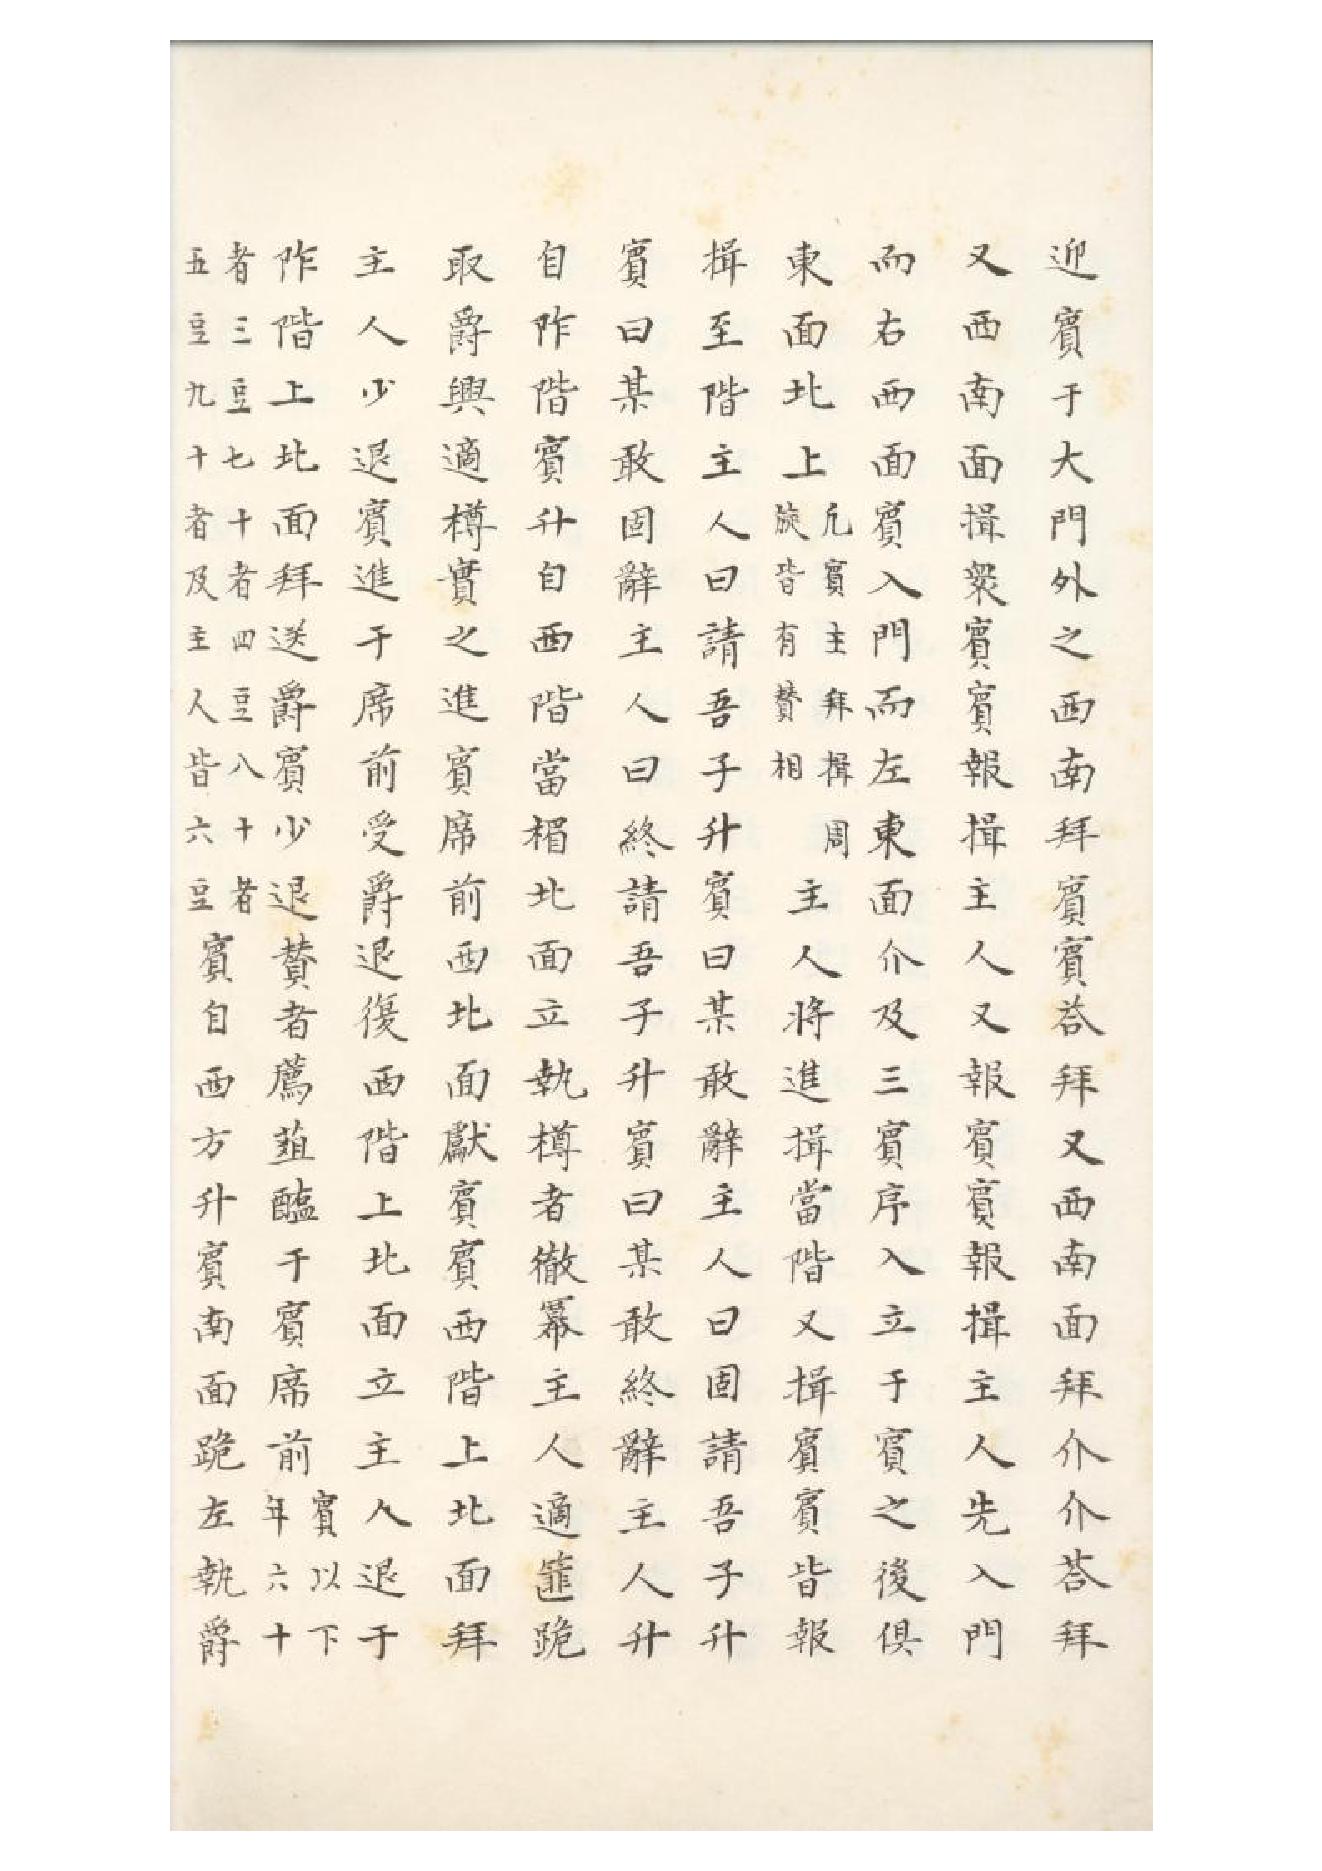 迎賓于大門外之西南拜賓賓荅拜又西南面拜介介荅拜
又西南面揖衆賓賓報揖主人又報賓賓報揖主人先入門
而右西面賓入門而左東面介及三賓序入立于賓之後俱
東面北上凡賓主拜揖周旋皆有贊相主人將進揖當階又揖賓賓皆報
揖至階主人曰請吾子升賓曰某敢辭主人曰固請吾子升
賓曰某敢固辭主人曰終請吾子升賓曰某敢終辭主人升
自阼階賓升自西階當楣北面立執樽者徹冪主人適篚跪
取爵興適樽實之進賓席前西北面獻賓賓西階上北面拜
主人少退賓進于席前受爵退復西階上北面立主人退于
阼階上北面拜送爵賓少退贊者薦葅醢于賓席前賓以下年六十
者三豆七十者四豆八十者五豆九十者及主人皆六豆賓自西方升賓南面跪左執爵